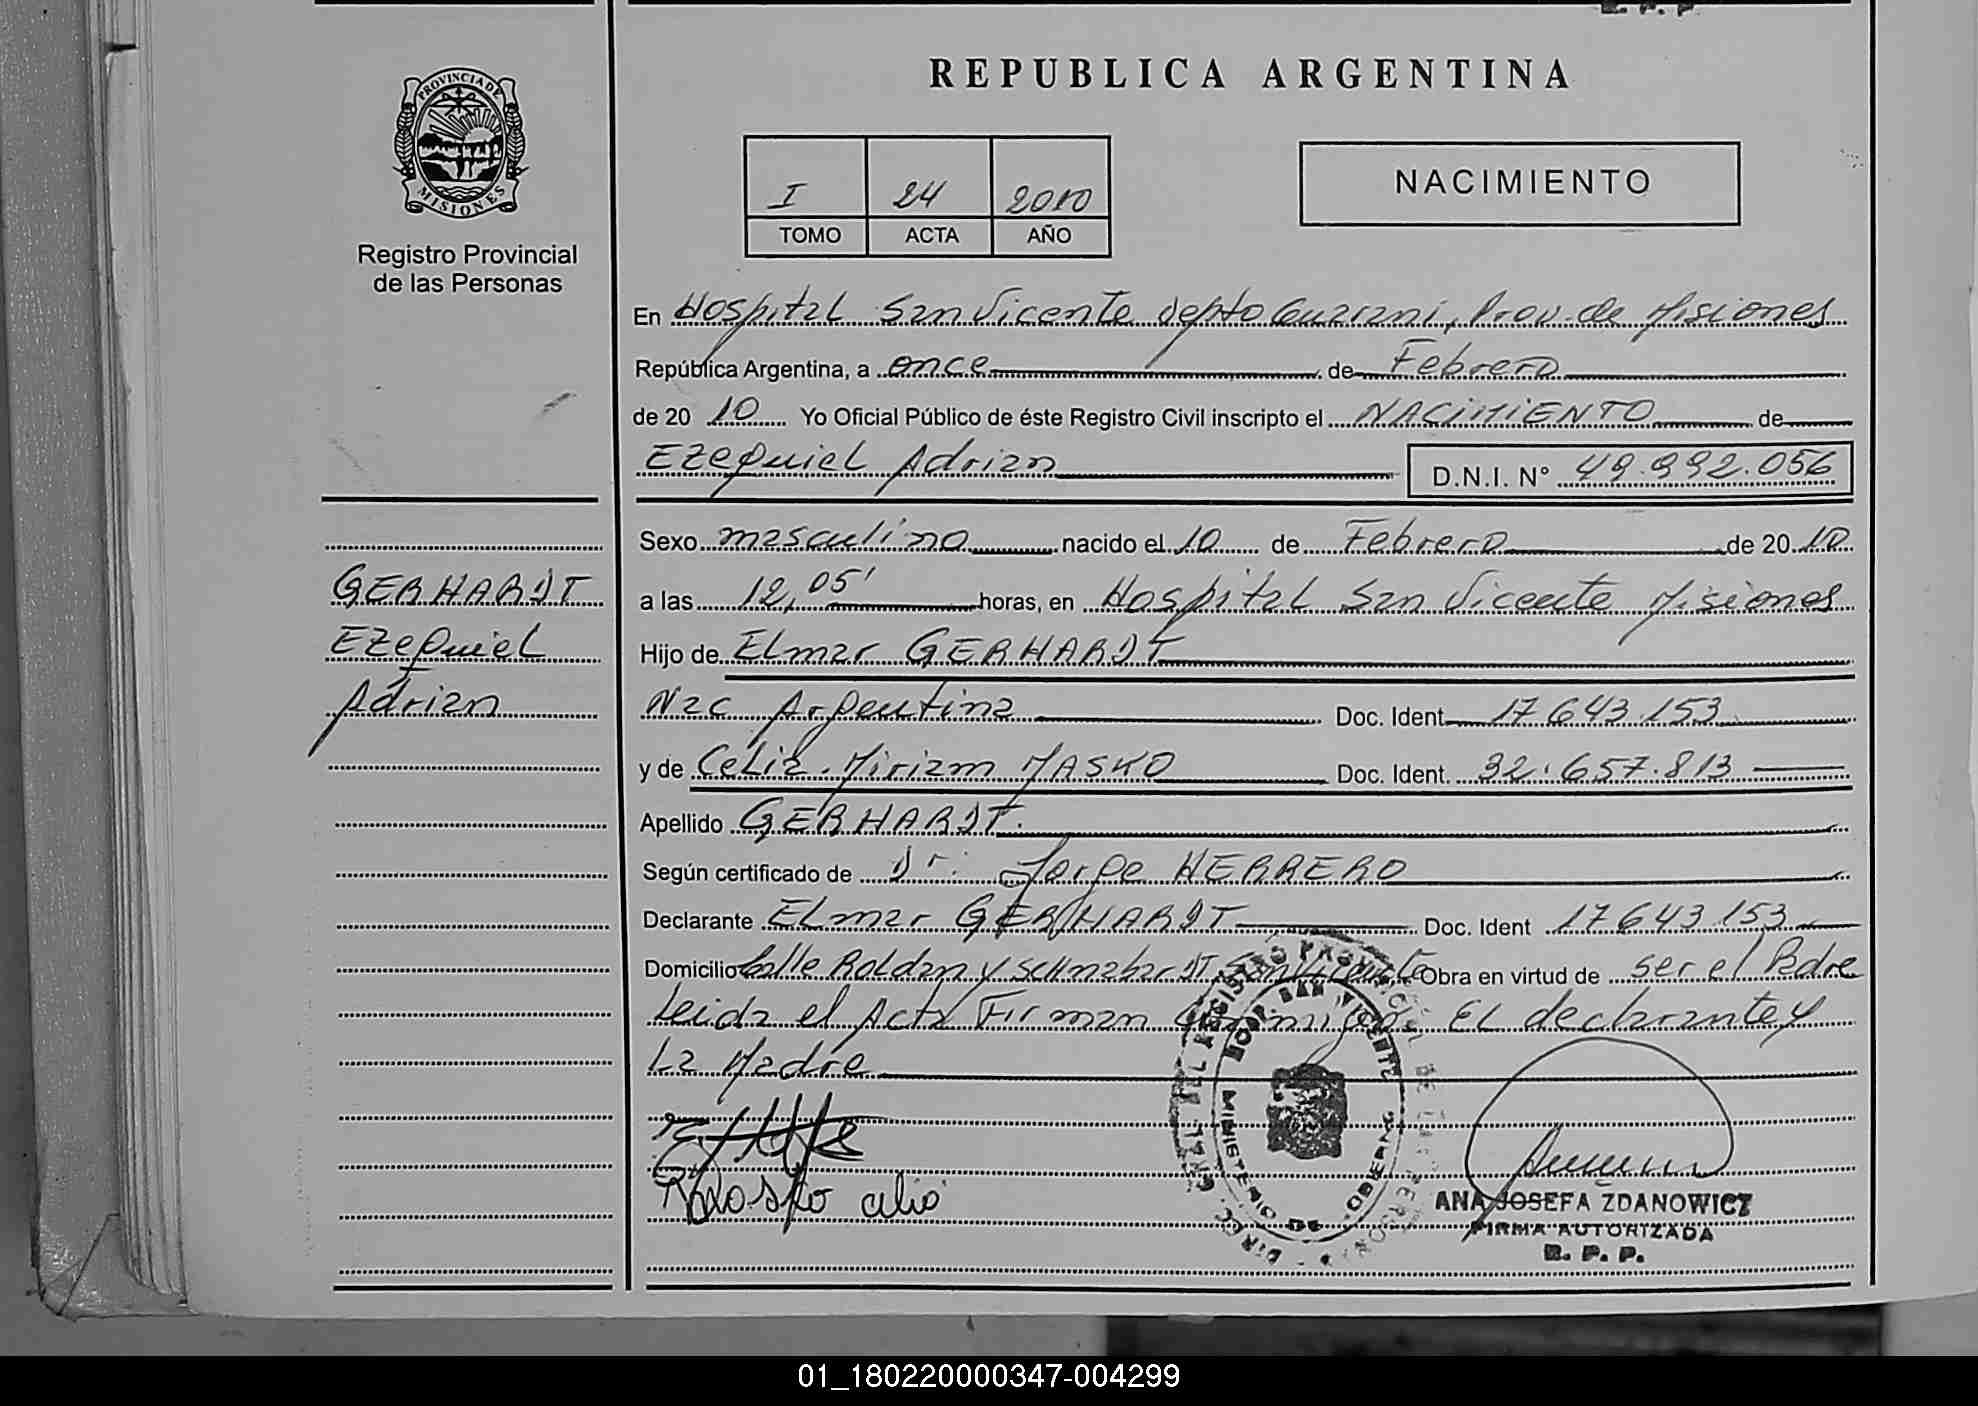 R. P. P.
PROVINCIA DE
MISIONES
Registro Provincial
de las Personas
REPUBLICA ARGENTINA
I 24 2010
TOMO ACTA AÑO
NACIMIENTO
En Hospital San Vicente depto Guarani, Prov. de Misiones
República Argentina, a once de Febrero
de 20 10 Yo Oficial Público de éste Registro Civil inscripto el NACIMIENTO de
Ezequiel Adrian D.N.I. N° 49.992.056
Sexo masculino nacido el 10 de Febrero de 20 10
a las 12,05' horas, en Hospital San Vicente Misiones
Hijo de Elmar GERHARDT
Nac Argentina Doc. Ident 17.643.153
y de Celia Miriam MASKO Doc. Ident. 32.657.813
Apellido GERHARDT.
Según certificado de Dr. Jorge HERRERO
Declarante Elmar GERHARDT Doc. Ident 17.643.153
Domicilio Calle Roldan y San Vicente Obra en virtud de ser el Padre
Leida el Acta Firman El declarante y
La Madre
GERHARDT
Ezequiel
Adrian
HOSP. SAN VICENTE
MINISTERIO DE GOBIERNO
ANA JOSEFA ZDANOWICZ
FIRMA AUTORIZADA
R. P. P.
01_180220000347-004299